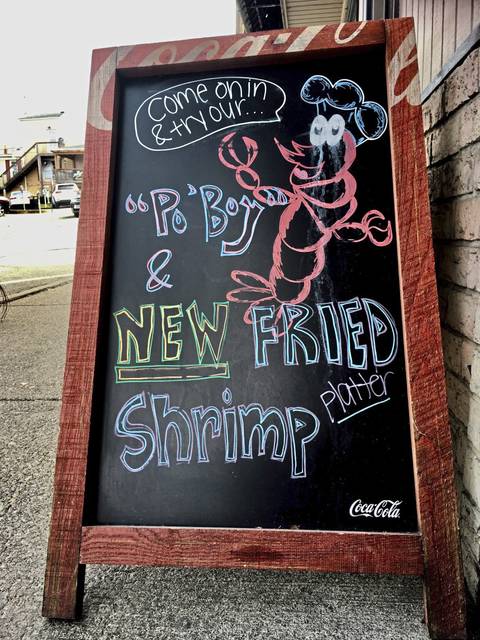 Coca-Cola
Come on in
& try our...
"Po'Boy"
&
NEW FRIED
Shrimp Platter
Coca-Cola